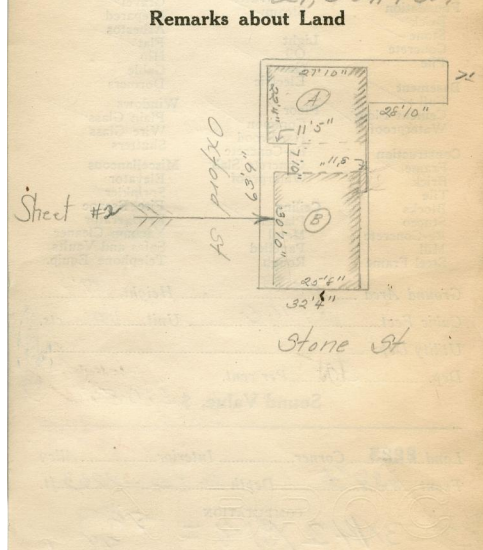 Remarks about Land
27'10"
A
28'10"
11'5"
7'10"
Oxford St
63'9"
Sheet #2
30'10"
B
25'8"
32'4"
Stone St